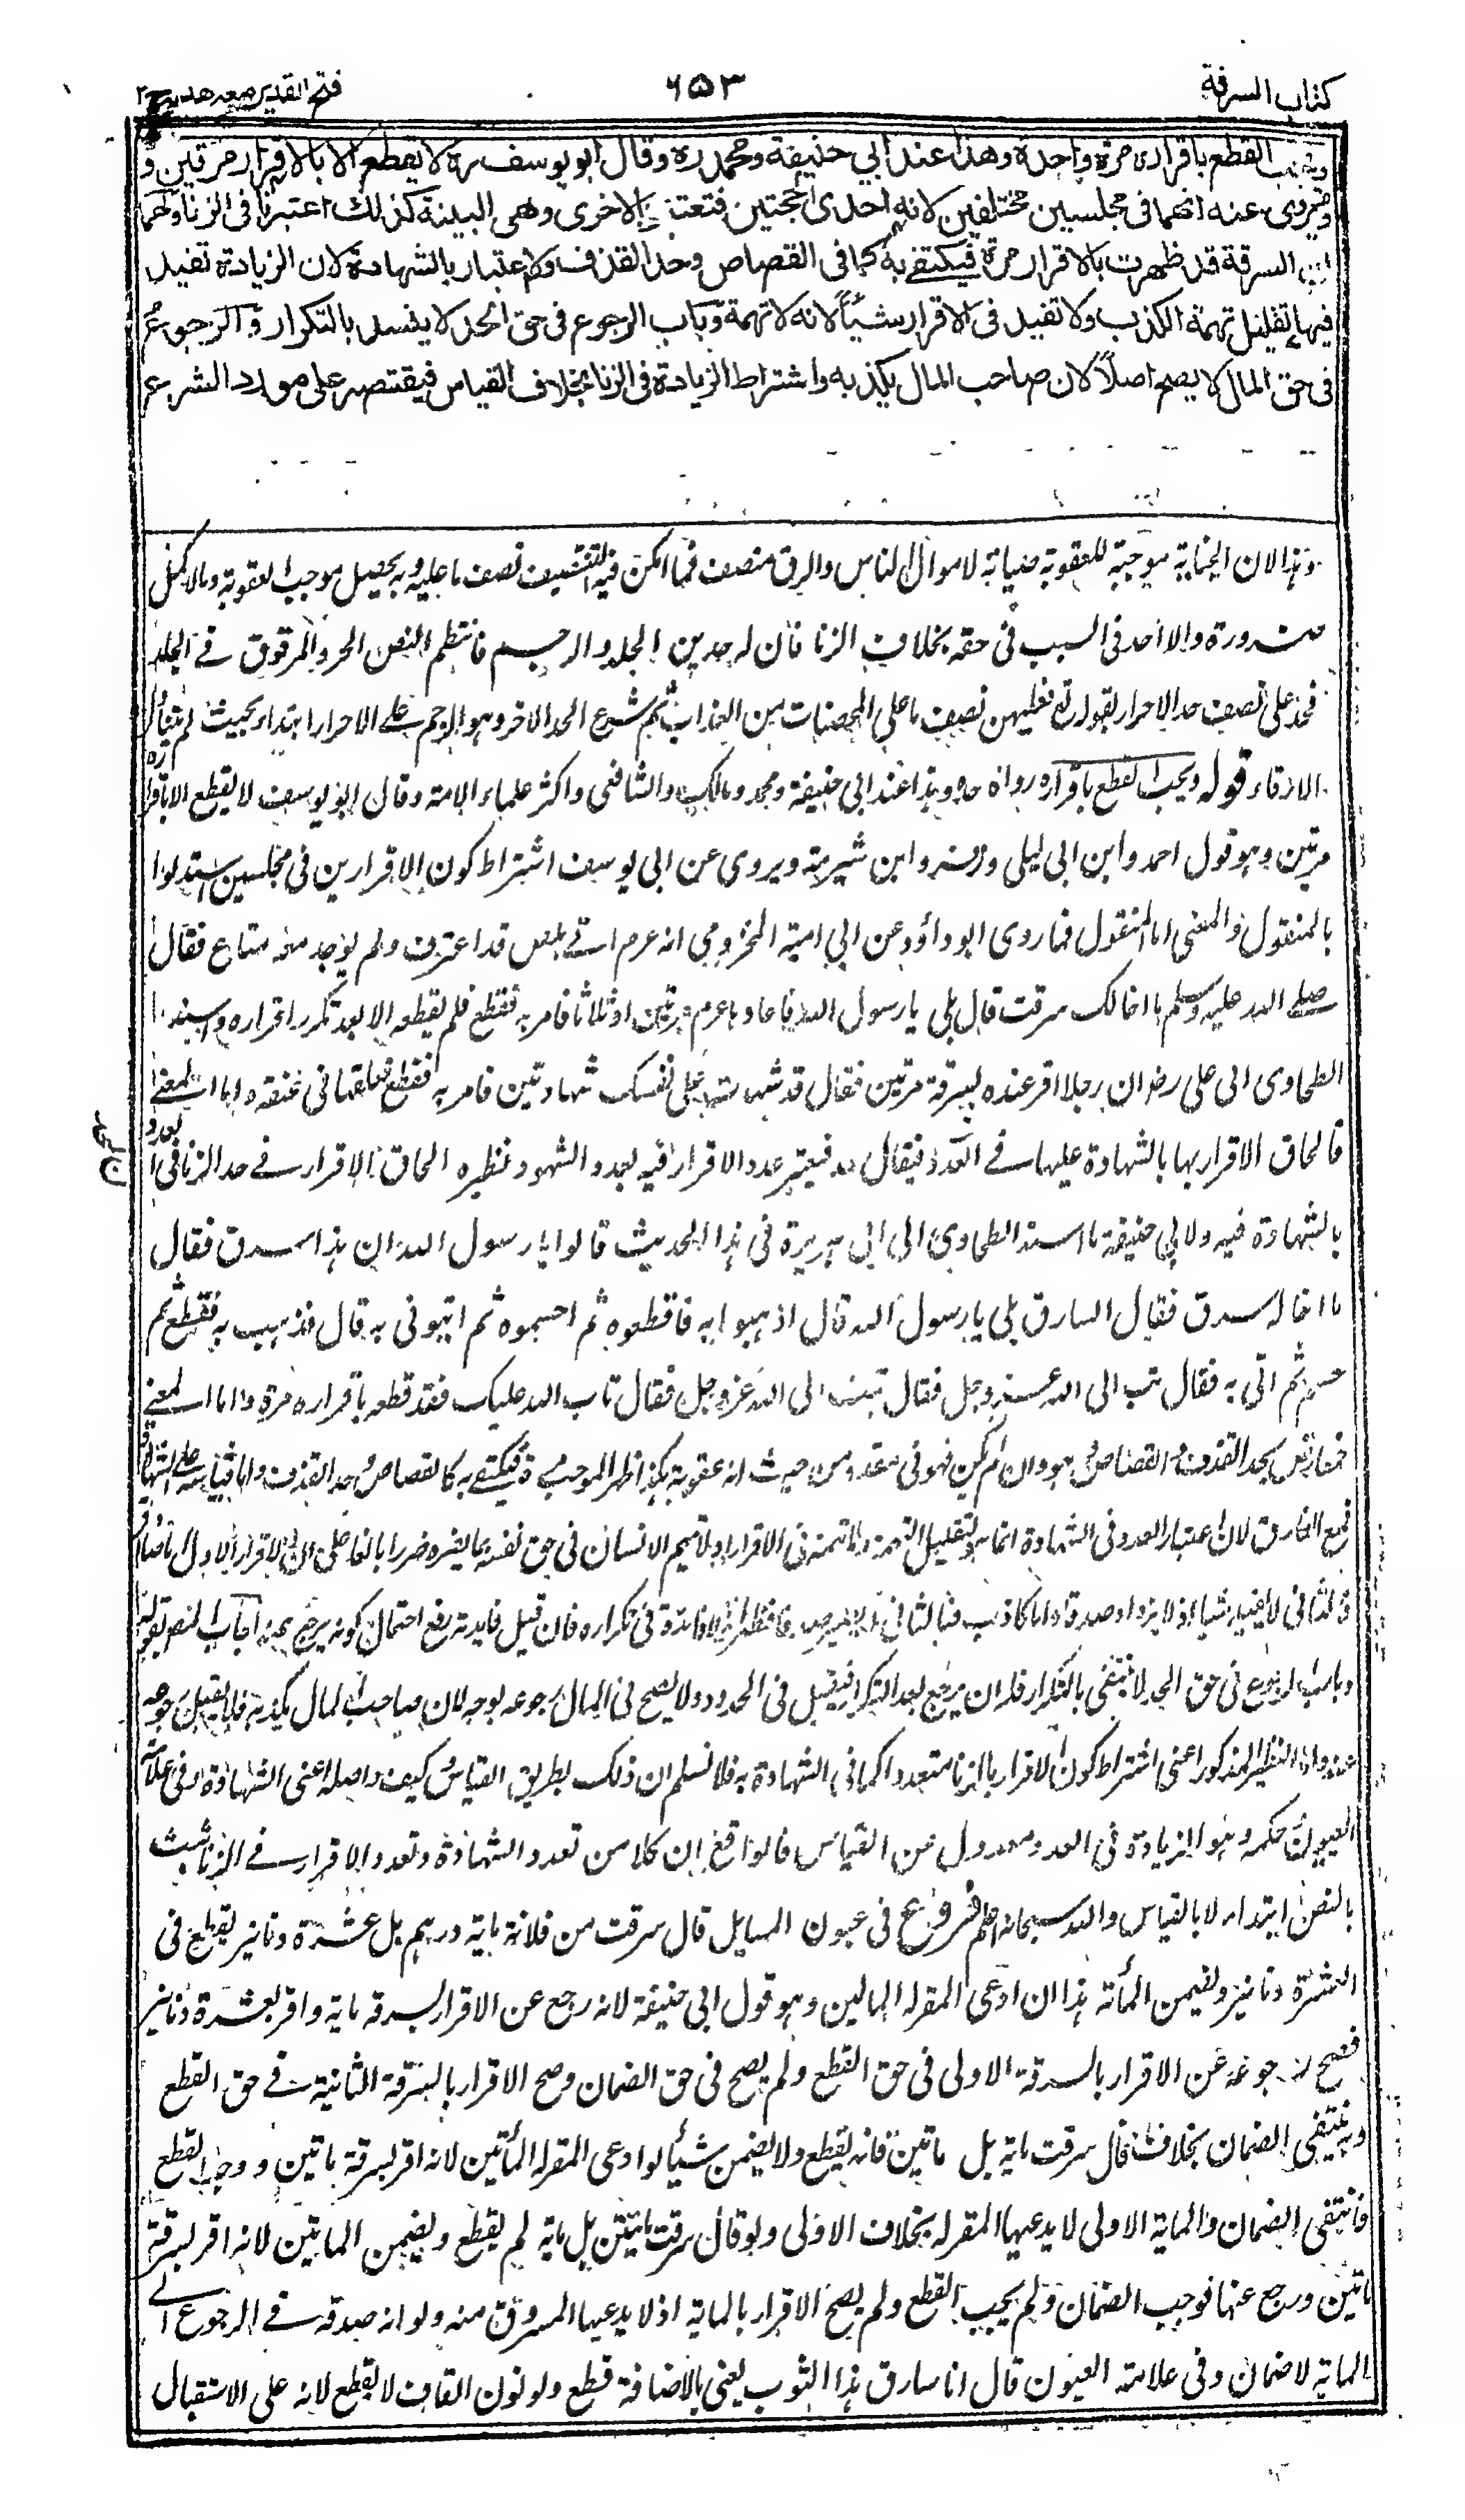 كتاب السرقة
٦٥٣
فتح القدير مع هدايه ج ٢
ويجب القطع باقراره مرة واحدة وهذا عند ابي حنيفة ومحمد ره وقال ابو يوسف ره لا يقطع الا بالاقرار مرتين و
روى عنه انهما في مجلسين مختلفين لانه احدى الحجتين فتعتبر بالاخرى وهى البينة كذلك اعتبرنا فى الزنا ولهما
ان السرقة قد ظهرت بالاقرار مرة فيكتفى به كما فى القصاص وحد القذف ولا اعتبار بالشهادة لان الزيادة تفيد
فيها تقليل تهمة الكذب ولا تفيد فى الاقرار شيئا لانه لا تهمة وباب الرجوع فى حق الحد لا ينسد بالتكرار والرجوع
فى حق المال لا يصح اصلا لان صاحب المال يكذبه واشتراط الزيادة فى الزنا بخلاف القياس فيقتصر على مورد الشرع
وهذا لان الجناية موجبة للعقوبة صيانة لاموال الناس والرق منصف فما امكن فيه التنصيف نصف ما عليه وبه يحصل موجب العقوبة وما لا يمكن
ضرورة والا احد فى السبب فى حقه بخلاف الزنا فان له حدين الجلد والرجم فانتظم النص الحر والمرقوق فى الجلد
فحد على نصف حد الاحرار لقوله تع فعليهن نصف ما على المحصنات من العذاب ثم شرع الحد الاخر وهو الرجم على الاحرار ابتداء بحيث لم يتناول
الارقاء قوله ويجب القطع باقراره مرة واحدة وهذا عند ابى حنيفة ومحمد ومالك والشافعى واكثر علماء الامة وقال ابو يوسف ره لا يقطع الا باقرار
مرتين وهو قول احمد وابن ابى ليلى وزفر وابن شبرمة ويروى عن ابى يوسف اشتراط كون الاقرارين فى مجلسين استدلوا
بالمنقول والمعنى اما المنقول فما روى ابو داؤد عن ابى امية المخزومى انه عم اتى بلص قد اعترف ولم يوجد معه متاع فقال
صلى الله عليه وسلم ما اخالك سرقت قال بلى يا رسول الله فاعادها عم مرتين او ثلاثا فامر به فقطع فلم يقطعه الا بعد تكرر اقراره واسند
الطحاوى الى على رض ان رجلا اقر عنده بسرقة مرتين فقال قد شهدت على نفسك شهادتين فامر به فقطع فعلقها فى عنقه واما المعنى
فالحاق الاقرار بها بالشهادة عليها فى العدد فيقال حد فيعتبر عدد الاقرار فيه بعدد الشهود نظيره الحاق الاقرار فى حد الزنا فى العدد
بالشهادة فيه ولابى حنيفة ما اسند الطحاوى الى ابى هريرة فى هذا الحديث قالوا يا رسول الله ان هذا سرق فقال
ما اخاله سرق فقال السارق بلى يا رسول الله قال اذهبوا به فاقطعوه ثم احسموه ثم ايتونى به قال فذهب به فقطع ثم
حسم ثم اتى به فقال تب الى الله عز وجل فقال تبت الى الله عز وجل فقال تاب الله عليك فقد قطعه باقراره مرة واما المعنى
فمعارض بحد القذف والقصاص هو وان لم يكن فهو فى متعدد من حيث انه عقوبة ظهر الموجب مرة فيكتفى به كالقصاص وحد القذف واما قياسه على الشهادة
فمع الفارق لان اعتبار العدد فى الشهادة انما هو لتقليل التهمة ولا تهمة فى الاقرار اذ لا يتهم الانسان فى حق نفسه بما يضره ضررا بالغا على ان الاقرار الاول اما صادق
فالثانى لا يفيد شيئا اذ لا يزداد صدقا واما كاذب فبالثانى لا يصير صدقا فظهر انه لا فائدة فى تكراره فان قيل فايدته رفع احتمال كونه يرجع عنه اجاب المص بقوله
وباب الرجوع فى حق الحد لا ينتفى بالتكرار فله ان يرجع بعد التكرار فيقبل فى الحدود ولا يصح فى المال رجوعه بوجه لان صاحب المال يكذبه فلا يقبل رجوعه
واما النظير المذكور اعنى اشتراط كون الاقرار بالزنا متعددا كما فى الشهادة به فلا نسلم ان ذلك بطريق القياس كيف واصله اعنى الشهادة فى
حكمه وهو الزيادة فى العدد معدول عن القياس فالواقع ان كلا من تعدد الشهادة وتعدد الاقرار فى الزنا ثبت
بالنص ابتداء لا بالقياس والله سبحانه اعلم فروع فى عيون المسايل قال سرقت من فلانة ماية درهم بل عشرة دنانير يقطع فى
العشرة دنانير ويضمن المائة هذا ان ادعى المقر له المالين وهو قول ابى حنيفة لانه رجع عن الاقرار بسرقة ماية واقر بعشرة دنانير
فصح رجوعه عن الاقرار بالسرقة الاولى فى حق القطع ولم يصح فى حق الضمان وصح الاقرار بالسرقة الثانية فى حق القطع
وينتفى الضمان بخلاف قال سرقت ماية بل ماتين فانه يقطع ولا يضمن شيئا لو ادعى المقر له المأتين لانه اقر بسرقة ماتين ووجب القطع
فانتفى الضمان والماية الاولى لا يدعيها المقر له بخلاف الاولى ولو قال سرقت ماتين بل ماية لم يقطع ويضمن الماتين لانه اقر بسرقة
ماتين ورجع عنها فوجب الضمان ولم يجب القطع ولم يصح الاقرار بالماية اذ لا يدعيها المسروق منه ولو انه صدقه فى الرجوع الى
الماية لا ضمان وفى علامة العيون قال انا سارق هذا الثوب يعنى بالاضافة قطع ولو نون القاف لا يقطع لانه على الاستقبال